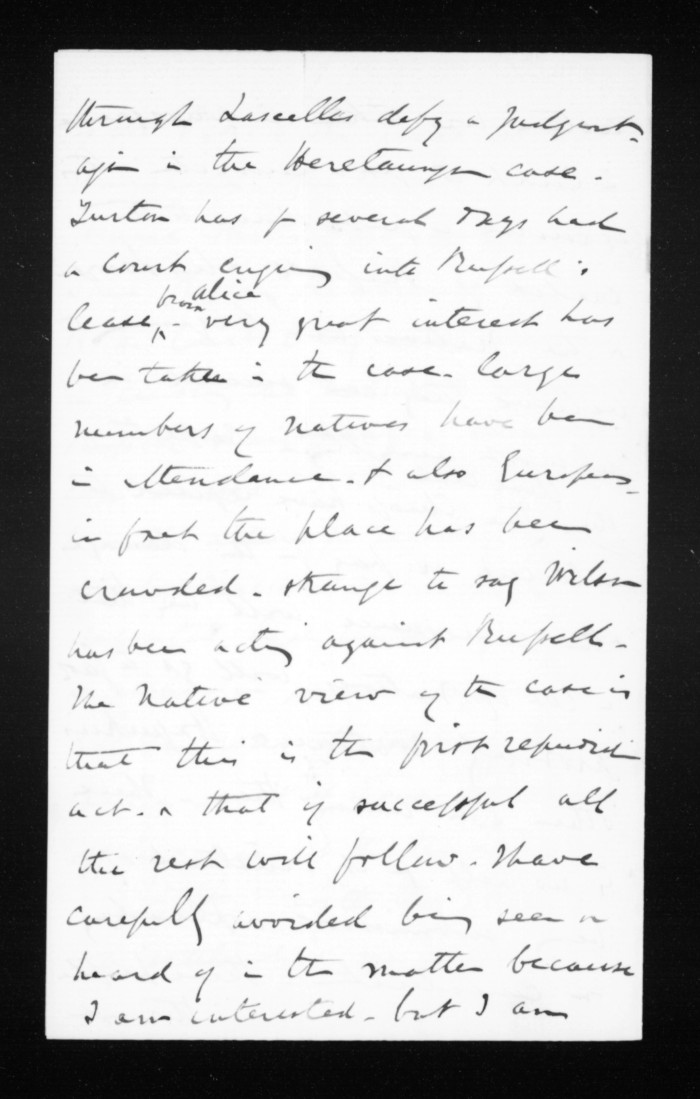 through Lascelles defy a Judgmt
agn in the Heretaunga case.
Turton has for several days had
a court enquiry into Russell's
lease, from alice - very great interest has
been taken in the case - large
numbers of natives have been
in attendance - & also Europeans -
in fact the place has been
crowded - strange to say Wilson
has been acting against Russell -
The Native view of the case is
that this is the first
act - & that if successful all
the rest will follow - I have
carefully avoided being seen or
heard of in the matter because
I am interested - but I am